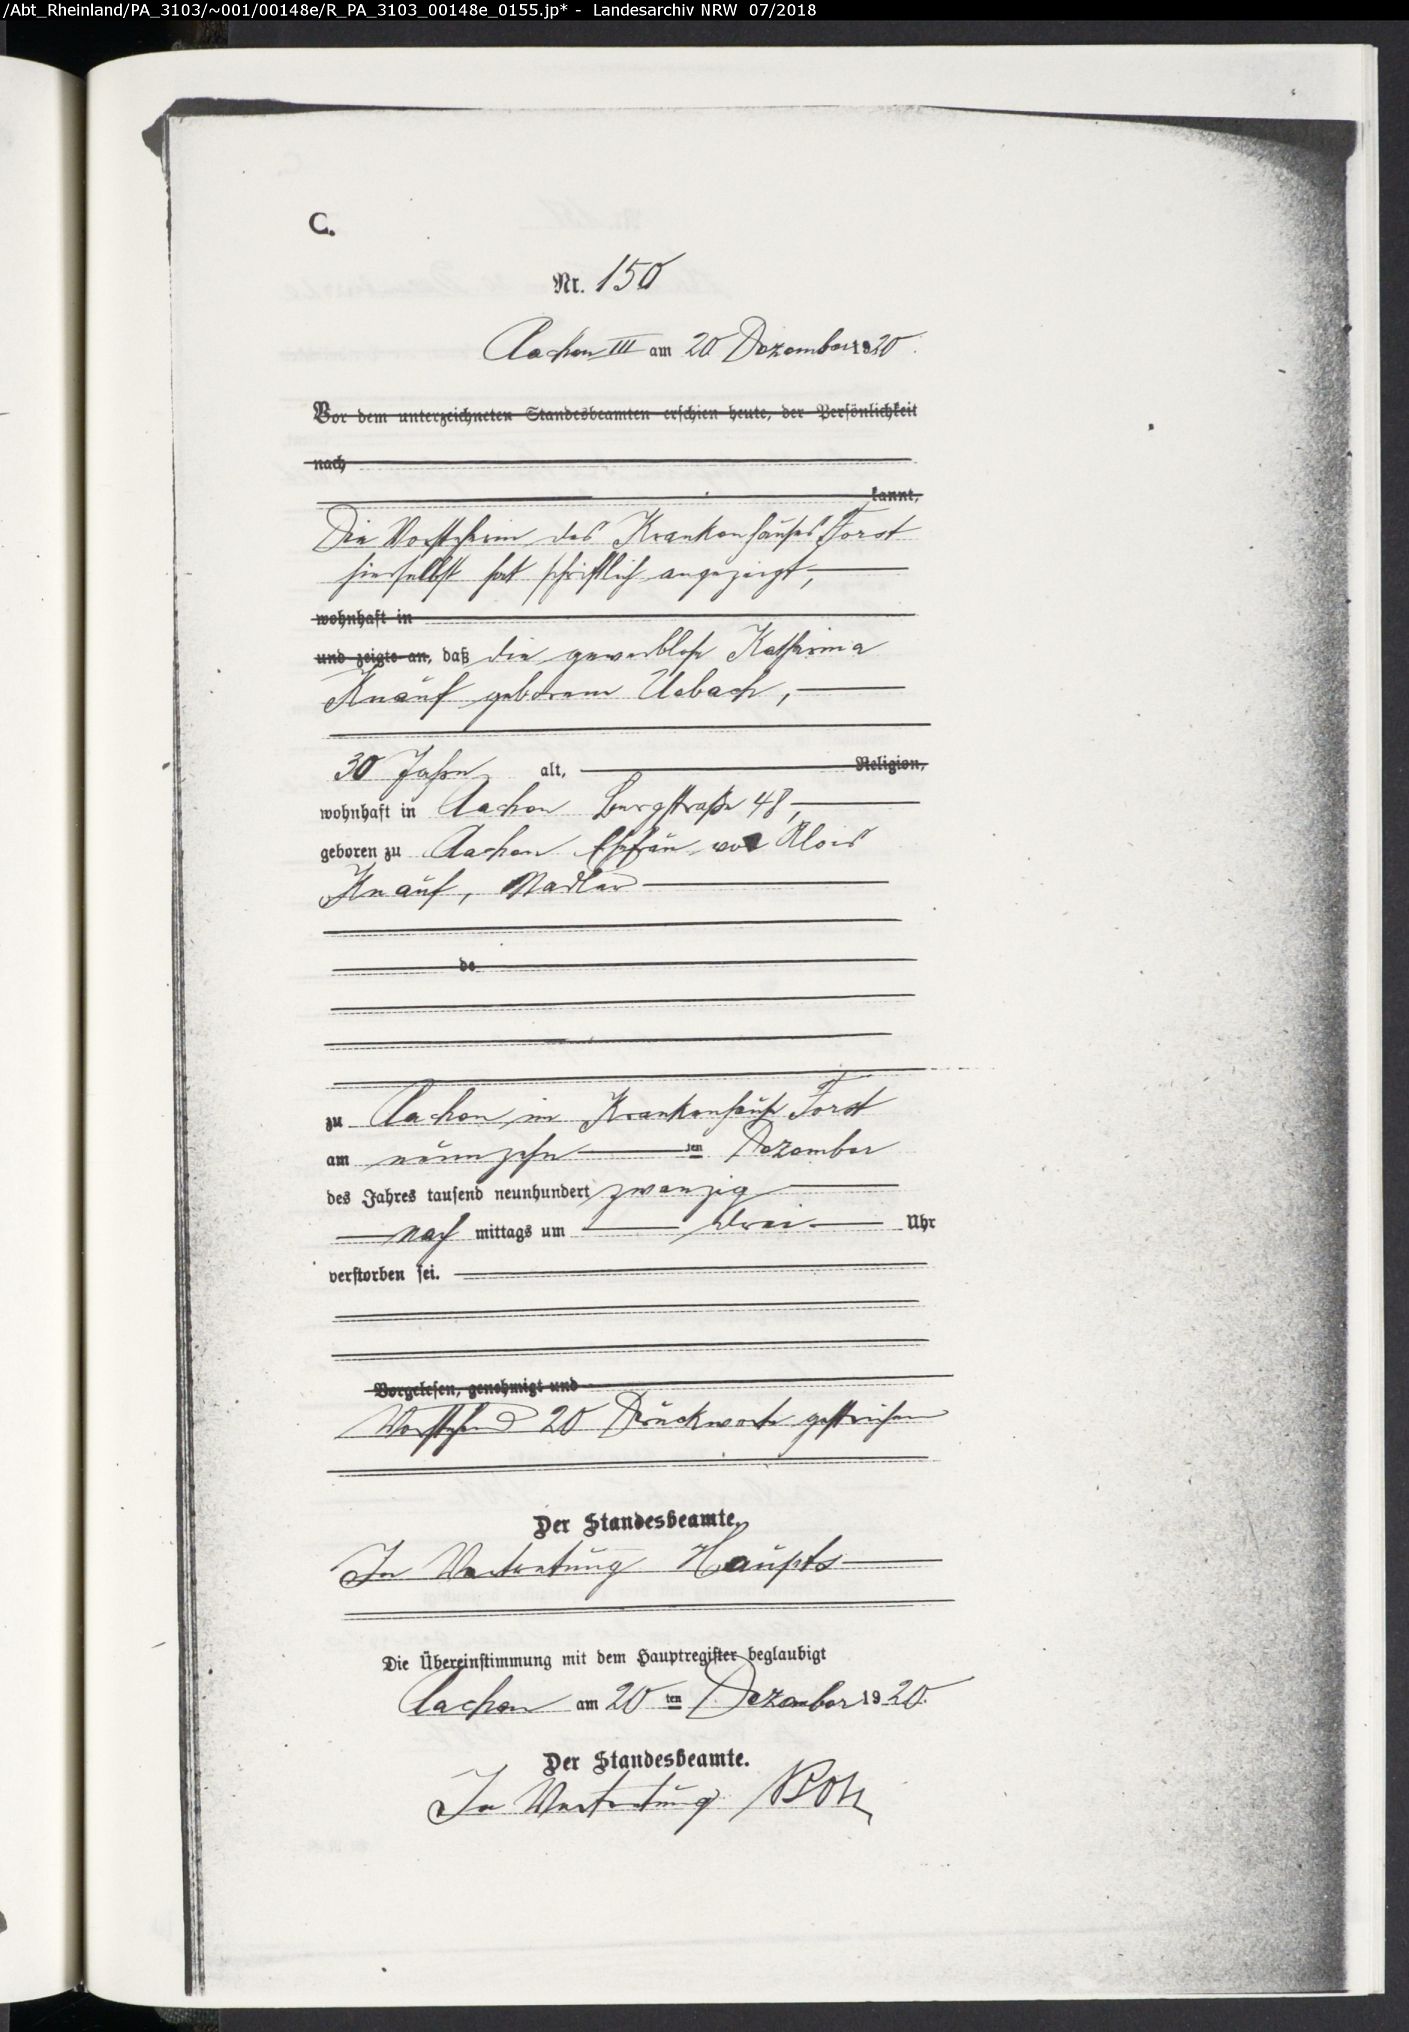 /Abt_Rheinland/PA_3103/~001/00148e/R_PA_3103_00148e_0155.jp* - Landesarchiv NRW 07/2018
C.
Nr. 150
Aachen III am 20 Dezember 1920.
Vor dem unterzeichneten Standesbeamten erschien heute, der Persönlichkeit
nach
kannt,
Die Vorsteherin des Krankenhauses Forst
hierselbst hat schriftlich angezeigt,
wohnhaft in
und zeigte an, daß die gewerblose Katharina
Knauf geborene Uebach,
30 Jahre alt, Religion,
wohnhaft in Aachen Burgstraße 48,
geboren zu Aachen Ehefrau von Alois
Knauf, Nadler
de
zu Aachen im Krankenhause Forst
am neunzehn ten Dezember
des Jahres tausend neunhundert zwanzig
nach mittags um drei Uhr
verstorben sei.
Vorgelesen, genehmigt und
Vorstehend 20 Druckworte gestrichen
Der Standesbeamte.
In Vertretung Haupts
Die Übereinstimmung mit dem Hauptregister beglaubigt
Aachen am 20 ten Dezember 1920.
Der Standesbeamte.
In Vertretung